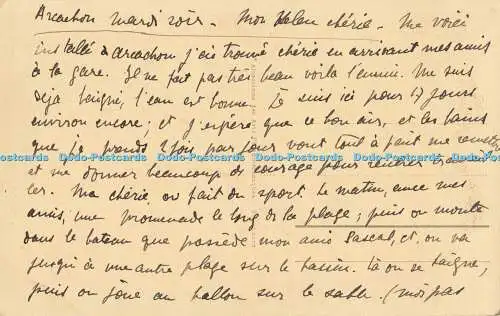 Arcachon mardi soir. Mon Helen chérie. Me voici
installé à Arcachon j'ai trouvé chérie en arrivant mes amis
à la gare. Il ne fait pas très beau voila l'ennui. Me suis
deja baigné, l'eau est bonne. Je suis ici pour 17 jours
environ encore; et j'espère que ce bon air, et les bains
que je prends 2 fois par jour vont tout à fait me remettre
Dodo-Postcards Dodo-Postcards Dodo-Postcards Dodo-Postcards Dodo-Postcards Dodo-Postcards
et me donner beaucoup de courage pour rentrer travail
ler. Ma chérie, on fait du sport. Le matin, avec mes
amis, une promenade le long de la plage; puis on monte
dans le bateau que possède mon ami Pascal, et, on va
jusqu'à une autre plage sur le bassin. Là on se baigne,
puis on joue au ballon sur le sable. (moi pas